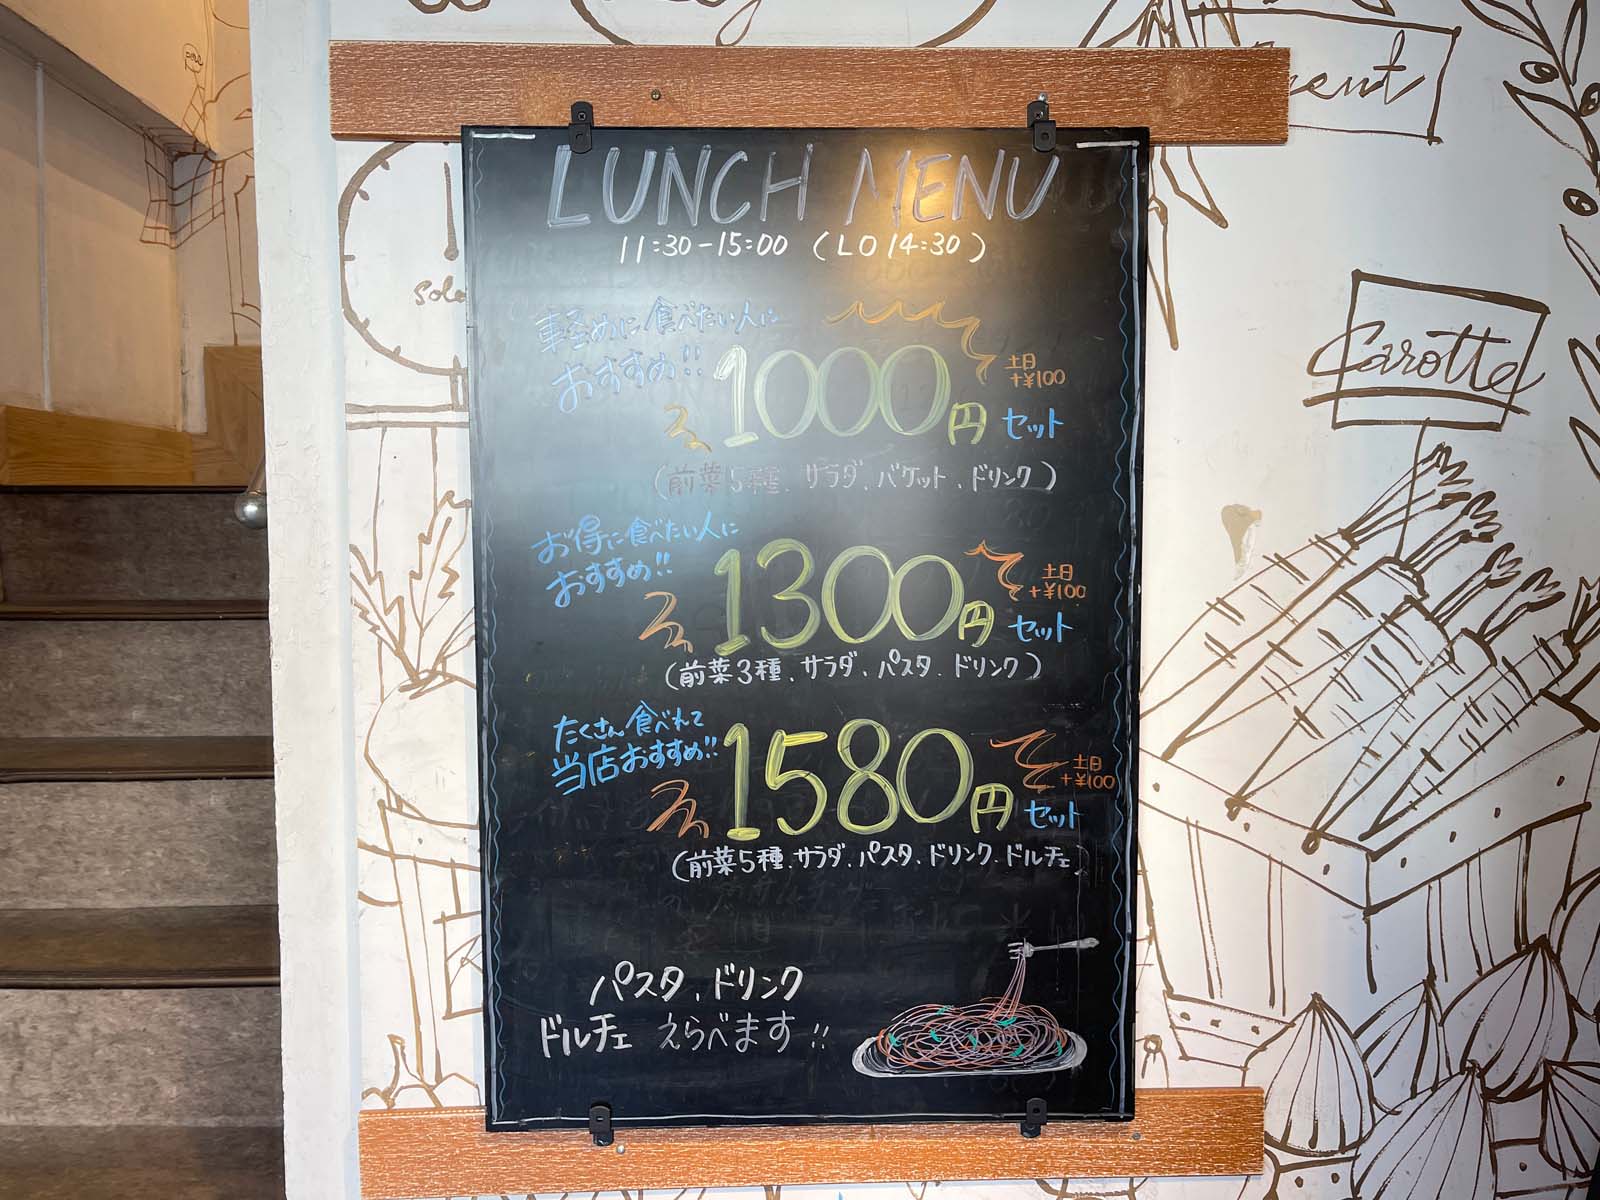 LUNCH MENU
11:30-15:00 (LO 14:30)
軽めに食べたい人に
おすすめ!!
1000円セット
土日
+¥100
(前菜5種、サラダ、バケット、ドリンク)
お得に食べたい人に
おすすめ!!
1300円セット
土日
+¥100
(前菜3種、サラダ、パスタ、ドリンク)
たくさん食べれて
当店おすすめ!!
1580円セット
土日
+¥100
(前菜5種、サラダ、パスタ、ドリンク、ドルチェ)
パスタ、ドリンク
ドルチェ えらべます!!
Carotte